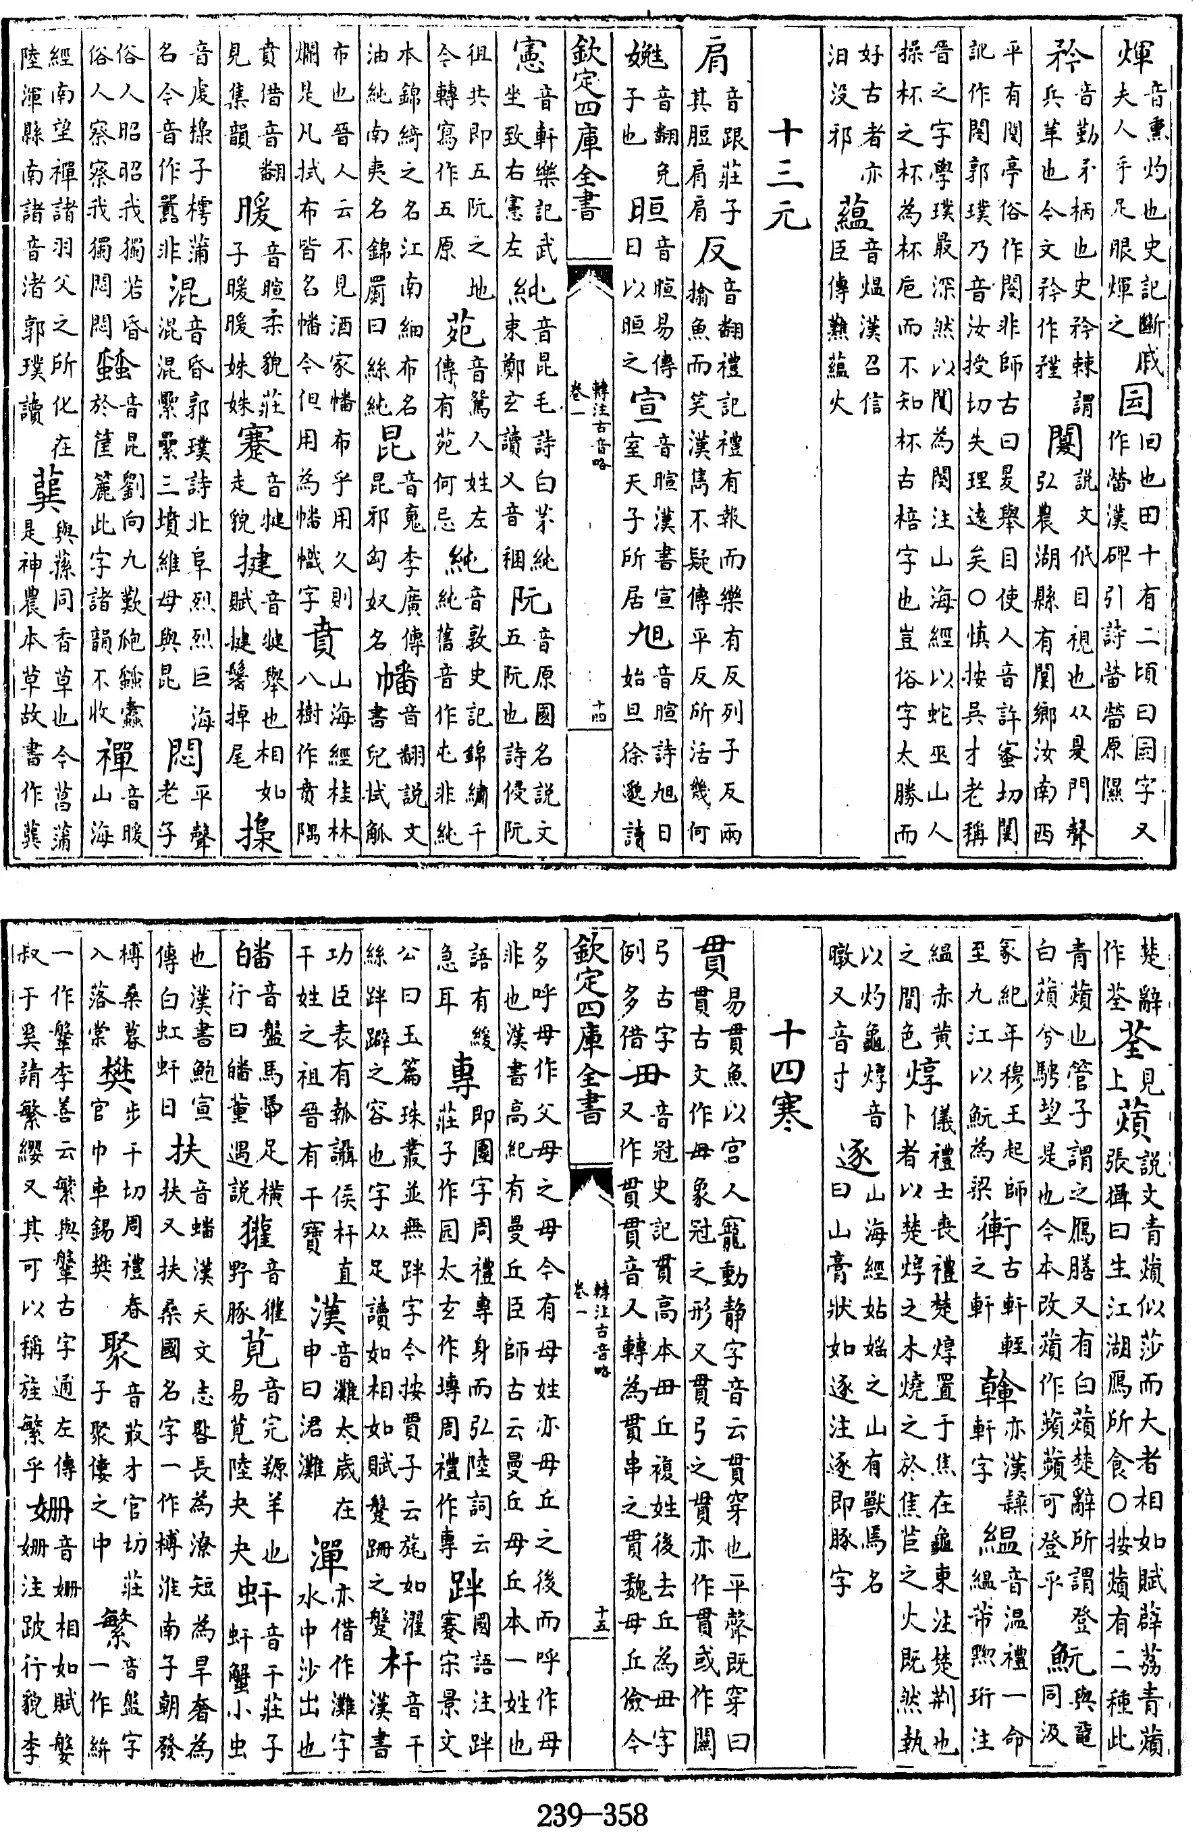 煇音熏灼也史記斷戚夫人手足眼煇之囩回也田十有二頃曰囩字又作㽬漢碑引詩㽬㽬原隰
矜音勤矛柄也史矜棘謂兵革也今文矜作㺉闅說文低目視也从𥄎門聲弘農湖縣有闅鄉汝南西
平有闅亭俗作閿非師古曰𥄎舉目使人音許蜜切閿訛作閺郭璞乃音汝授切失理遠矣○慎按吳才老稱
晉之字學璞最深然以闅為閿注山海經以蛇巫山人操杯之杯為杯巵而不知杯古棓字也豈俗字太勝而
好古者亦汨没邪蘊音熅漢召信臣傳難蘊火
十三元
肩音跟莊子其脰肩肩反音翻禮記禮有報而樂有反列子反兩㩉魚而笑漢雋不疑傳平反所活幾何
㝃音翻兔子也晅音暄易傳日以晅之宣音暄漢書宣室天子所居旭音暄詩旭日始旦徐邈讀
欽定四庫全書 轉注古音略 卷一 十四
憲音軒樂記武坐致右憲左純音昆毛詩白茅純束鄭玄讀又音稇阮音原國名說文五阮也詩侵阮
徂共即五阮之地今轉寫作五原苑音鴛人姓左傳有苑何忌純音敦史記錦繡千純舊音作屯非純
本錦綺之名江南細布名油純南夷名錦蜀曰絲純昆音䰟李廣傳昆邪匈奴名幡音翻說文書兒拭觚
布也晉人云不見酒家幡布乎用久則爛是凡拭布皆名幡今但用為幡幟字賁山海經桂林八樹作賁隅
賁借音翻見集韻暖音暄柔貌莊子暖暖姝姝蹇音揵走貌揵音犍舉也相如賦揵鬐掉尾㩌
音虔㩌子樗蒲名今音作䍻非混音昏郭璞詩北阜烈烈巨海混混壘壘三墳維母與昆悶平聲老子
俗人昭昭我獨若昏俗人察察我獨悶悶蝬音昆劉向九歎飑蝬蠹於筐簏此字諸韻不收禪音暖山海
經南望禪諸羽父之所化在陸渾縣南諸音渚郭璞讀䔿與蓀同香草也今菖蒲是神農本草故書作䔿
楚辭作荃荃見上薠說文青薠似莎而大者相如賦薜荔青薠張揖曰生江湖鴈所食○按薠有二種此
青薠也管子謂之鴈膳又有白薠楚辭所謂登白薠兮騁望是也今本改薠作蘋蘋可登乎魭與黿同汲
冢紀年穆王起師至九江以魭為梁衝古軒輊之軒𨍭亦漢隸軒字緼音温禮一命緼韍黝珩注
緼赤黄之間色焞儀禮士喪禮楚焞置于焦在龜東注楚荆也卜者以楚焞之木燒之於焦苣之火既然執
以灼龜焞音暾又音寸逐山海經姑媱之山有獸焉名曰山膏狀如逐注逐即豚字
十四寒
貫易貫魚以宫人寵動静字音云貫穿也平聲既穿曰貫古文作毌象冠之形又貫弓之貫亦作貫或作關
弓古字例多借毌又作貫貫音冠史記貫高本毌丘複姓後去丘為毌字音又轉為貫串之貫魏毌丘儉今
多呼毋作父母之母今有毋姓亦毋丘之後而呼作毋非也漢書高紀有曼丘臣師古云曼丘毋丘本一姓也
語有緩急耳專即團字周禮專身而弘陸詞云莊子作園太玄作塼周禮作專跘國語注跘蹇宗景文
欽定四庫全書 轉注古音略 卷一 十五
公曰玉篇珠叢並無跘字今按賈子云旄如濯絲跘躃之容也字从足讀如相如賦蹩跚之蹩杆音干漢書
功臣表有瓡讘侯杆直干姓之祖晉有干寶漢音灘太歲在申曰涒灘潬亦借作灘字水中沙出也
皤音盤馬帚足横白行曰皤董遇說獾音貛野豚莧音完羱羊也易莧陸夬夬虷音干莊子虷蟹小虫
也漢書鮑宣傳白虹虷日扶音蟠漢天文志晷長為潦短為旱奢為扶又扶桑國名字一作榑淮南子朝發
榑桑暮入落棠樊步干切周禮春官巾車錫樊聚音菆才官切莊子聚僂之中繁音盤字一作絣
一作鞶李善云繁與鞶古字通左傳叔于奚請繁纓又其可以稱旌繁乎姍音姗相如賦媻姗注跛行貌李
239-358